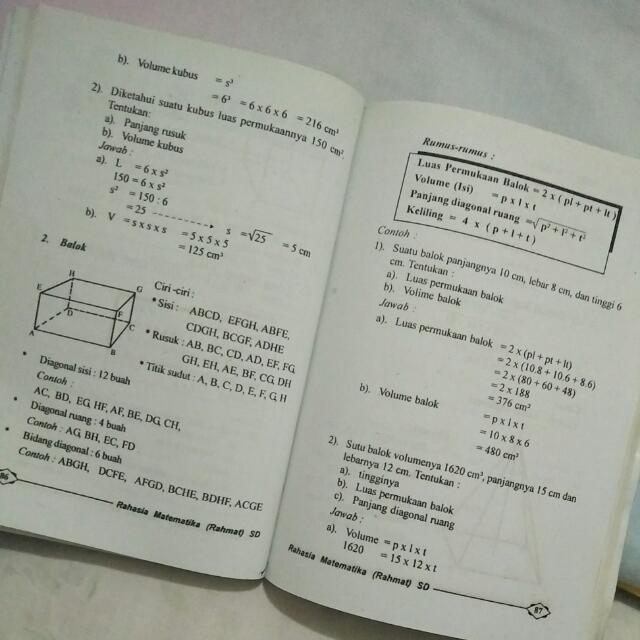 b). Volume kubus = s³
= 6³ = 6 x 6 x 6 = 216 cm³
2). Diketahui suatu kubus luas permukaannya 150 cm².
Tentukan:
a) Panjang rusuk
b) Volume kubus
Jawab :
a). L = 6 x s²
150 = 6 x s²
s² = 150 : 6
= 25 --------> s = √25 = 5 cm
b). V = s x s x s = 5 x 5 x 5
= 125 cm³
2. Balok
H
E
G
D
F
C
A
B
Ciri -ciri :
* Sisi : ABCD, EFGH, ABFE,
CDGH, BCGF, ADHE
* Rusuk : AB, BC, CD, AD, EF, FG,
GH, EH, AE, BF, CG, DH
* Titik sudut : A, B, C, D, E, F, G, H
• Diagonal sisi : 12 buah
Contoh :
AC, BD, EG, HF, AF, BE, DG, CH,
• Diagonal ruang : 4 buah
Contoh : AG, BH, EC, FD
• Bidang diagonal : 6 buah
Contoh : ABGH, DCFE, AFGD, BCHE, BDHF, ACGE
86
Rahasia Matematika (Rahmat) SD
Rumus-rumus :
Luas Permukaan Balok = 2 x ( pl + pt + lt )
Volume (Isi) = p x l x t
Panjang diagonal ruang = √p² + l² + t²
Keliling = 4 x ( p + l + t )
Contoh :
1). Suatu balok panjangnya 10 cm, lebar 8 cm, dan tinggi 6
cm. Tentukan :
a). Luas permukaan balok
b). Volime balok
Jawab :
a). Luas permukaan balok = 2 x (pl + pt + lt)
= 2 x (10.8 + 10.6 + 8.6)
= 2 x (80 + 60 + 48)
= 2 x 188
= 376 cm²
b). Volume balok = p x l x t
= 10 x 8 x 6
= 480 cm³
2). Sutu balok volumenya 1620 cm³, panjangnya 15 cm dan
lebarnya 12 cm. Tentukan :
a). tingginya
b). Luas permukaan balok
c). Panjang diagonal ruang
Jawab :
a). Volume = p x l x t
1620 = 15 x 12 x t
Rahasia Matematika (Rahmat) SD
87